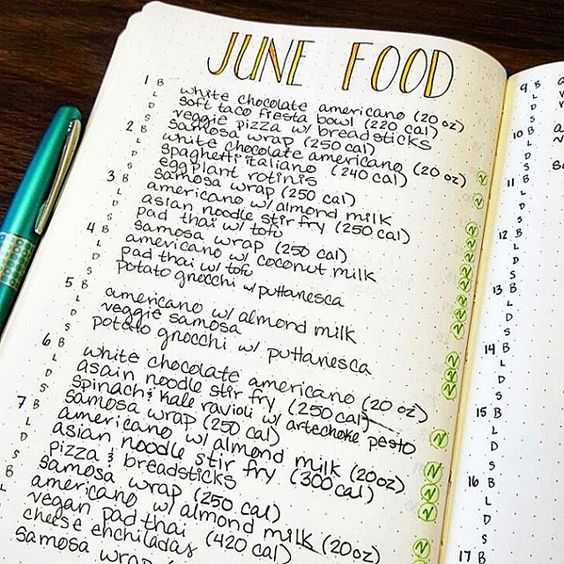 JUNE FOOD
1 B white chocolate americano (20 oz)
L soft taco fresta bowl (220 cal)
D veggie pizza w/ breadsticks
S samosa wrap (250 cal)
2 B white chocolate americano (20 oz)
L spaghetti italiano (240 cal)
D eggplant rotinis
S samosa wrap (250 cal)
3 B americano w/ almond milk
L asian noodle stir fry (250 cal)
D pad thai w/ tofu
S samosa wrap (250 cal)
4 B americano w/ coconut milk
L pad thai w/ tofu
D potato gnocchi w/ puttanesca
S
5 B americano w/ almond milk
L veggie samosa
D potato gnocchi w/ puttanesca
S
6 B white chocolate americano (20 oz)
L asain noodle stir fry (250 cal)
D spinach & kale ravioli w/ artechoke pesto
S samosa wrap (250 cal)
7 B americano w/ almond milk (20oz)
L asian noodle stir fry (300 cal)
D pizza & breadsticks
S samosa wrap (250 cal)
B americano w/ almond milk (20oz)
L vegan pad thai (420 cal)
cheese enchiladas
samosa wrap
9 B
L
D
S
10 B
L
D
S
11 B
L
D
S
12 B
L
D
S
13 B
L
D
S
14 B
L
D
S
15 B
L
D
S
16 B
L
D
S
17 B